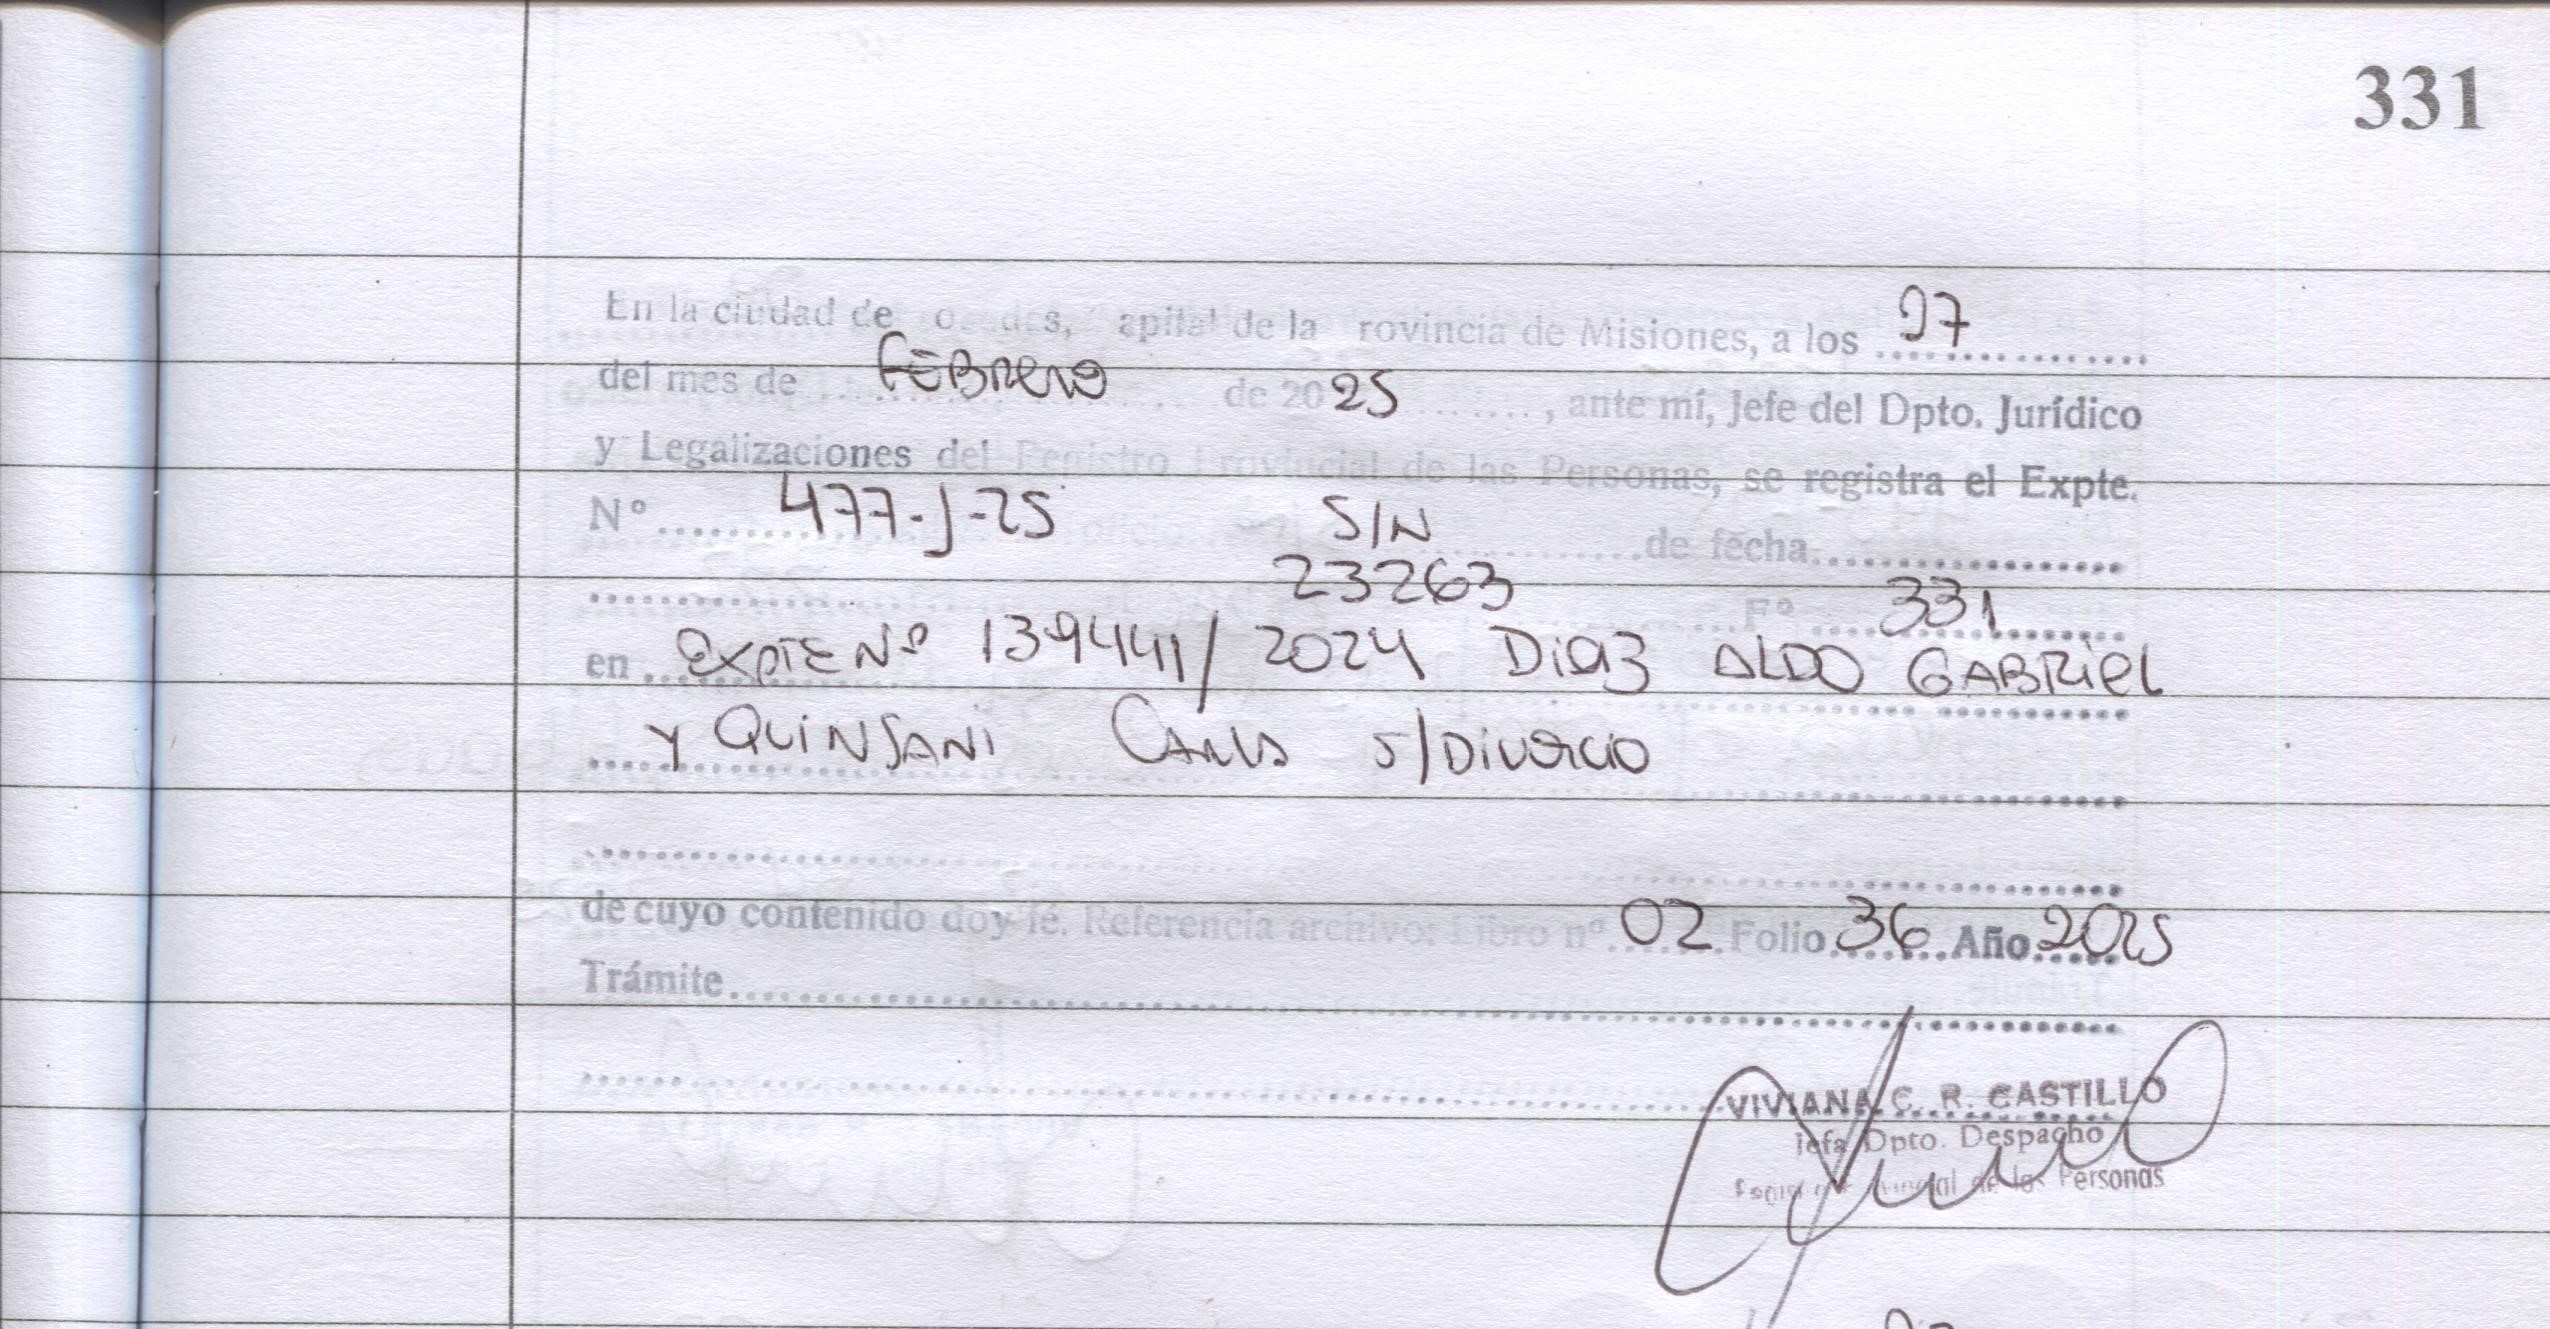 331
En la ciudad de Posadas, Capital de la Provincia de Misiones, a los 27
del mes de FEBRERO de 2025, ante mí, Jefe del Dpto. Jurídico
y Legalizaciones del Registro Provincial de las Personas, se registra el Expte.
Nº 477-J-25 S/N de fecha
23263 Fº 331
en EXPTE Nº 139441/2024 DiAZ ALDO GABRiEL
Y QUiNSANi CARLA S/DiVORCiO
de cuyo contenido doy fé. Referencia archivo: Libro nº 02 Folio 36 Año 2025
Trámite
VIVIANA C. R. CASTILLO
Jefa Dpto. Despacho
Registro Provincial de las Personas